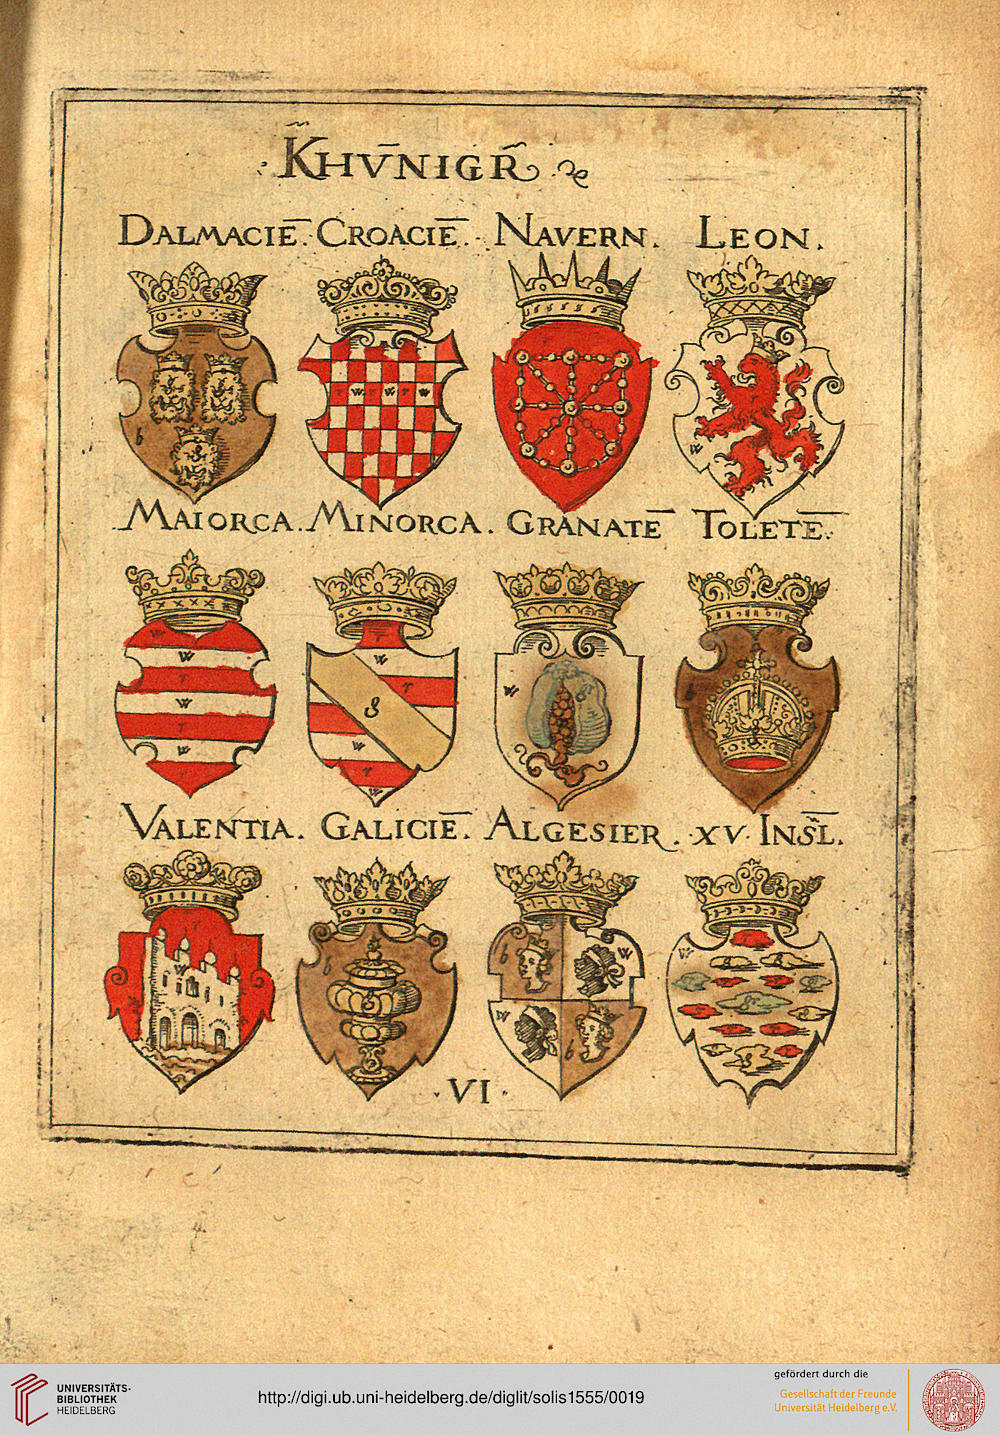 KHVN̄IGR̃
DALMACIE̅. CROACIE̅. NAVERN. LEON.
b
r w r w r w
w
MAIORCA. MINORCA. GRANATE̅ TOLETE̅.
w
w
r
w
r
w
r
w
r
g
w
r
w
w
gr
VALENTIA. GALICIE̅. ALGESIER. XV. INSL̅.
r
w
b
g
b
w
w
b
w
gr
VI
UNIVERSITÄTS-
BIBLIOTHEK
HEIDELBERG
http://digi.ub.uni-heidelberg.de/diglit/solis1555/0019
gefördert durch die
Gesellschaft der Freunde
Universität Heidelberg e.V.